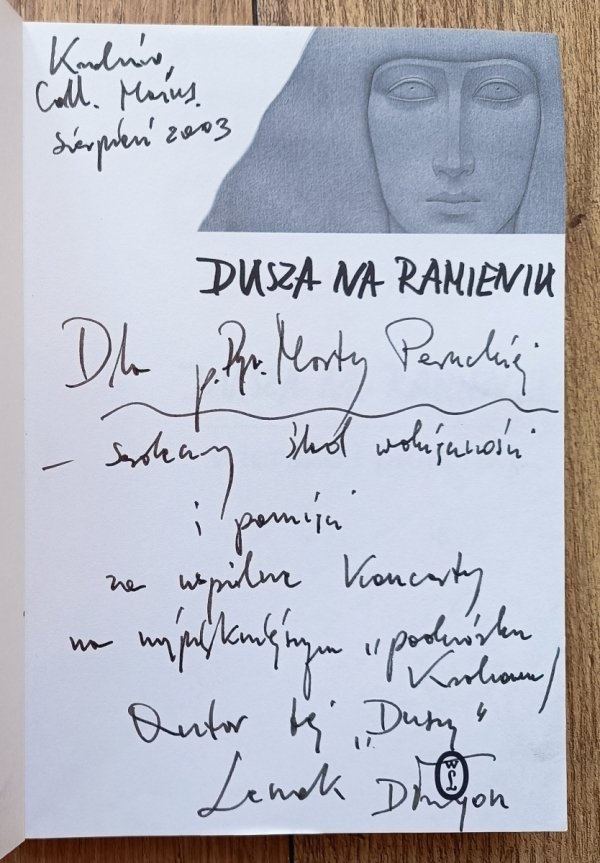 Kraków,
Coll. Maius.
sierpień 2003
DUSZA NA RAMIENIU
Dla p. Dyr. Marty Peruckiej
– serdeczny ślad wdzięczności
i pamięci
za wspólne Koncerty
na najpiękniejszym „podwórku
Krakowa /
Autor tej „Duszy"
Leszek Długosz
WL